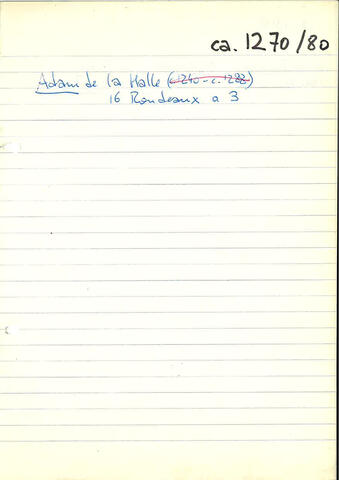 ca. 1270/80
Adam de la Halle (c1240 - c. 1288)
16 Rondeaux a 3